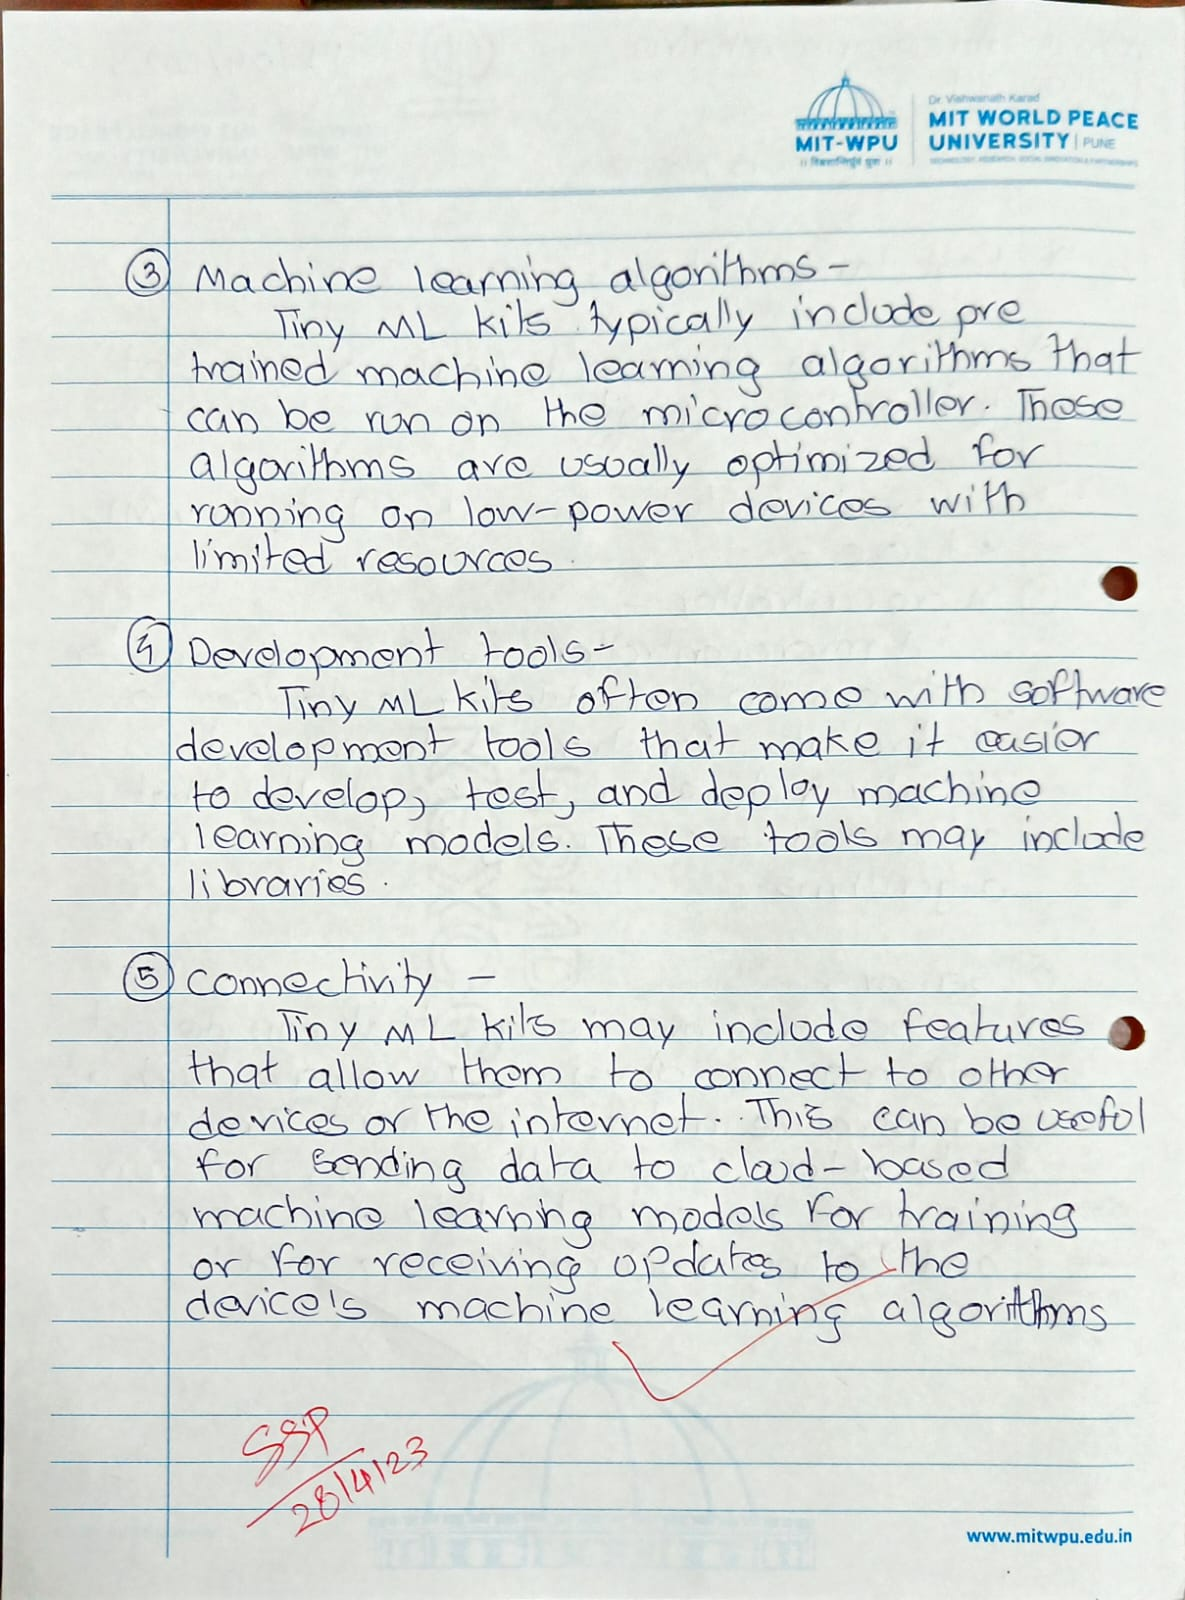 Dr. Vishwanath Karad
MIT WORLD PEACE
UNIVERSITY | PUNE
MIT-WPU
③ Machine learning algorithms -
Tiny ML kits typically include pre
trained machine learning algorithms that
can be run on the microcontroller. These
algorithms are usually optimized for
running on low-power devices with
limited resources.
④ Development tools -
Tiny ML kits often come with software
development tools that make it easier
to develop, test, and deploy machine
learning models. These tools may include
libraries.
⑤ Connectivity -
Tiny ML kits may include features
that allow them to connect to other
devices or the internet. This can be useful
for sending data to cloud-based
machine learning models for training
or for receiving updates to the
device's machine learning algorithms
SSP
28/4/23
www.mitwpu.edu.in